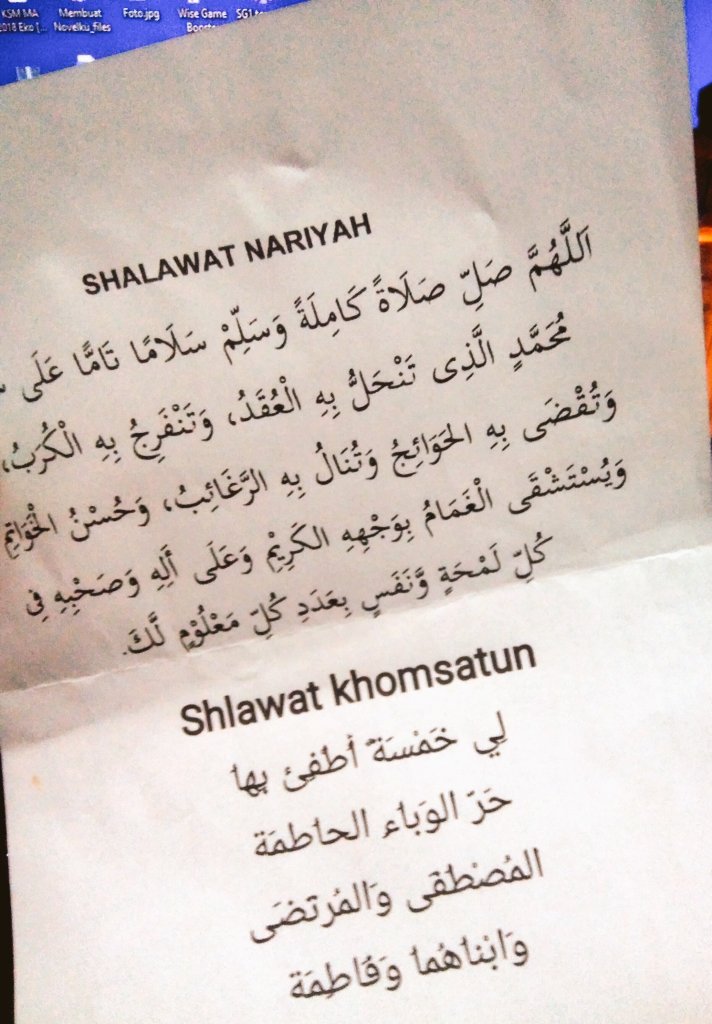 KSM MA Membuat Foto.jpg Wise Game SG1
2018 Eko [... Novelku_files
SHALAWAT NARIYAH
اَللَّهُمَّ صَلِّ صَلَاةً كَامِلَةً وَسَلِّمْ سَلَامًا تَامًّا عَلَى
مُحَمَّدٍ الَّذِى تَنْحَلُّ بِهِ الْعُقَدُ، وَتَنْفَرِجُ بِهِ الْكُرَبُ،
وَتُقْضَى بِهِ الحَوَائِجُ وَتُنَالُ بِهِ الرَّغَائِبُ، وَحُسْنُ الْخَوَاتِمِ
وَيُسْتَشْقَى الْغَمَامُ بِوَجْهِهِ الكَرِيْمِ وَعَلَى أَلِهِ وَصَحْبِهِ فِى
كُلِّ لَمْحَةٍ وَّنَفَسٍ بِعَدَدِ كُلِّ مَعْلُوْمٍ لَّكَ.
Shlawat khomsatun
لِي خَمْسَةٌ أطْفِئ بِها
حَرّ الوَباء الحاطمَة
المُصْطَفى وَالمُرتضَى
وَابْناهُما وَفَاطِمَة